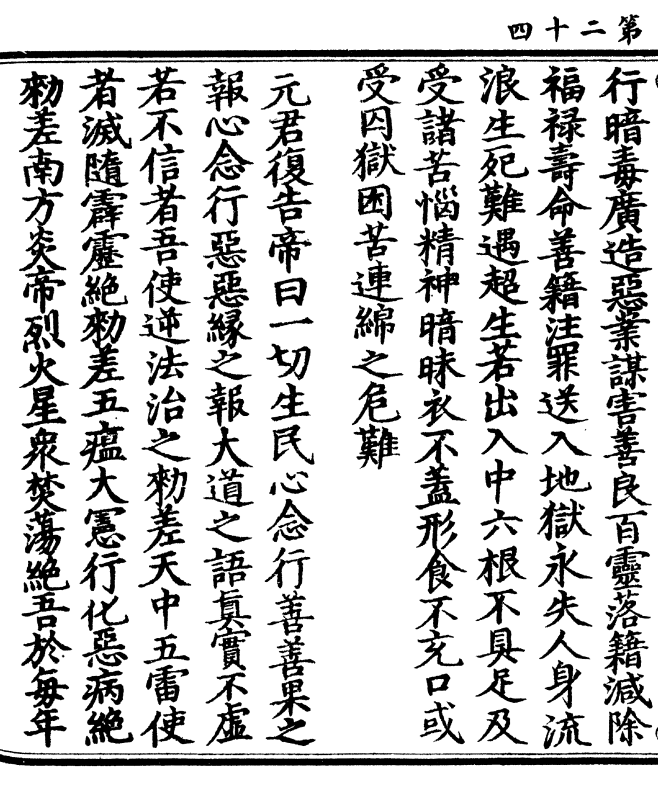 第二十四
行暗毒廣造惡業謀害善良百靈落籍減除
福禄壽命善籍注罪送入地獄永失人身流
浪生死難遇超生若出入中六根不具足及
受諸苦惱精神暗昧衣不蓋形食不充口或
受囚獄困苦連綿之危難
元君復告帝曰一切生民心念行善善果之
報心念行惡惡緣之報大道之語真實不虛
若不信者吾使逆法治之勑差天中五雷使
者滅隨霹靂絶勑差五瘟大憲行化惡病絶
勑差南方炎帝烈火星衆焚蕩絶吾於每年